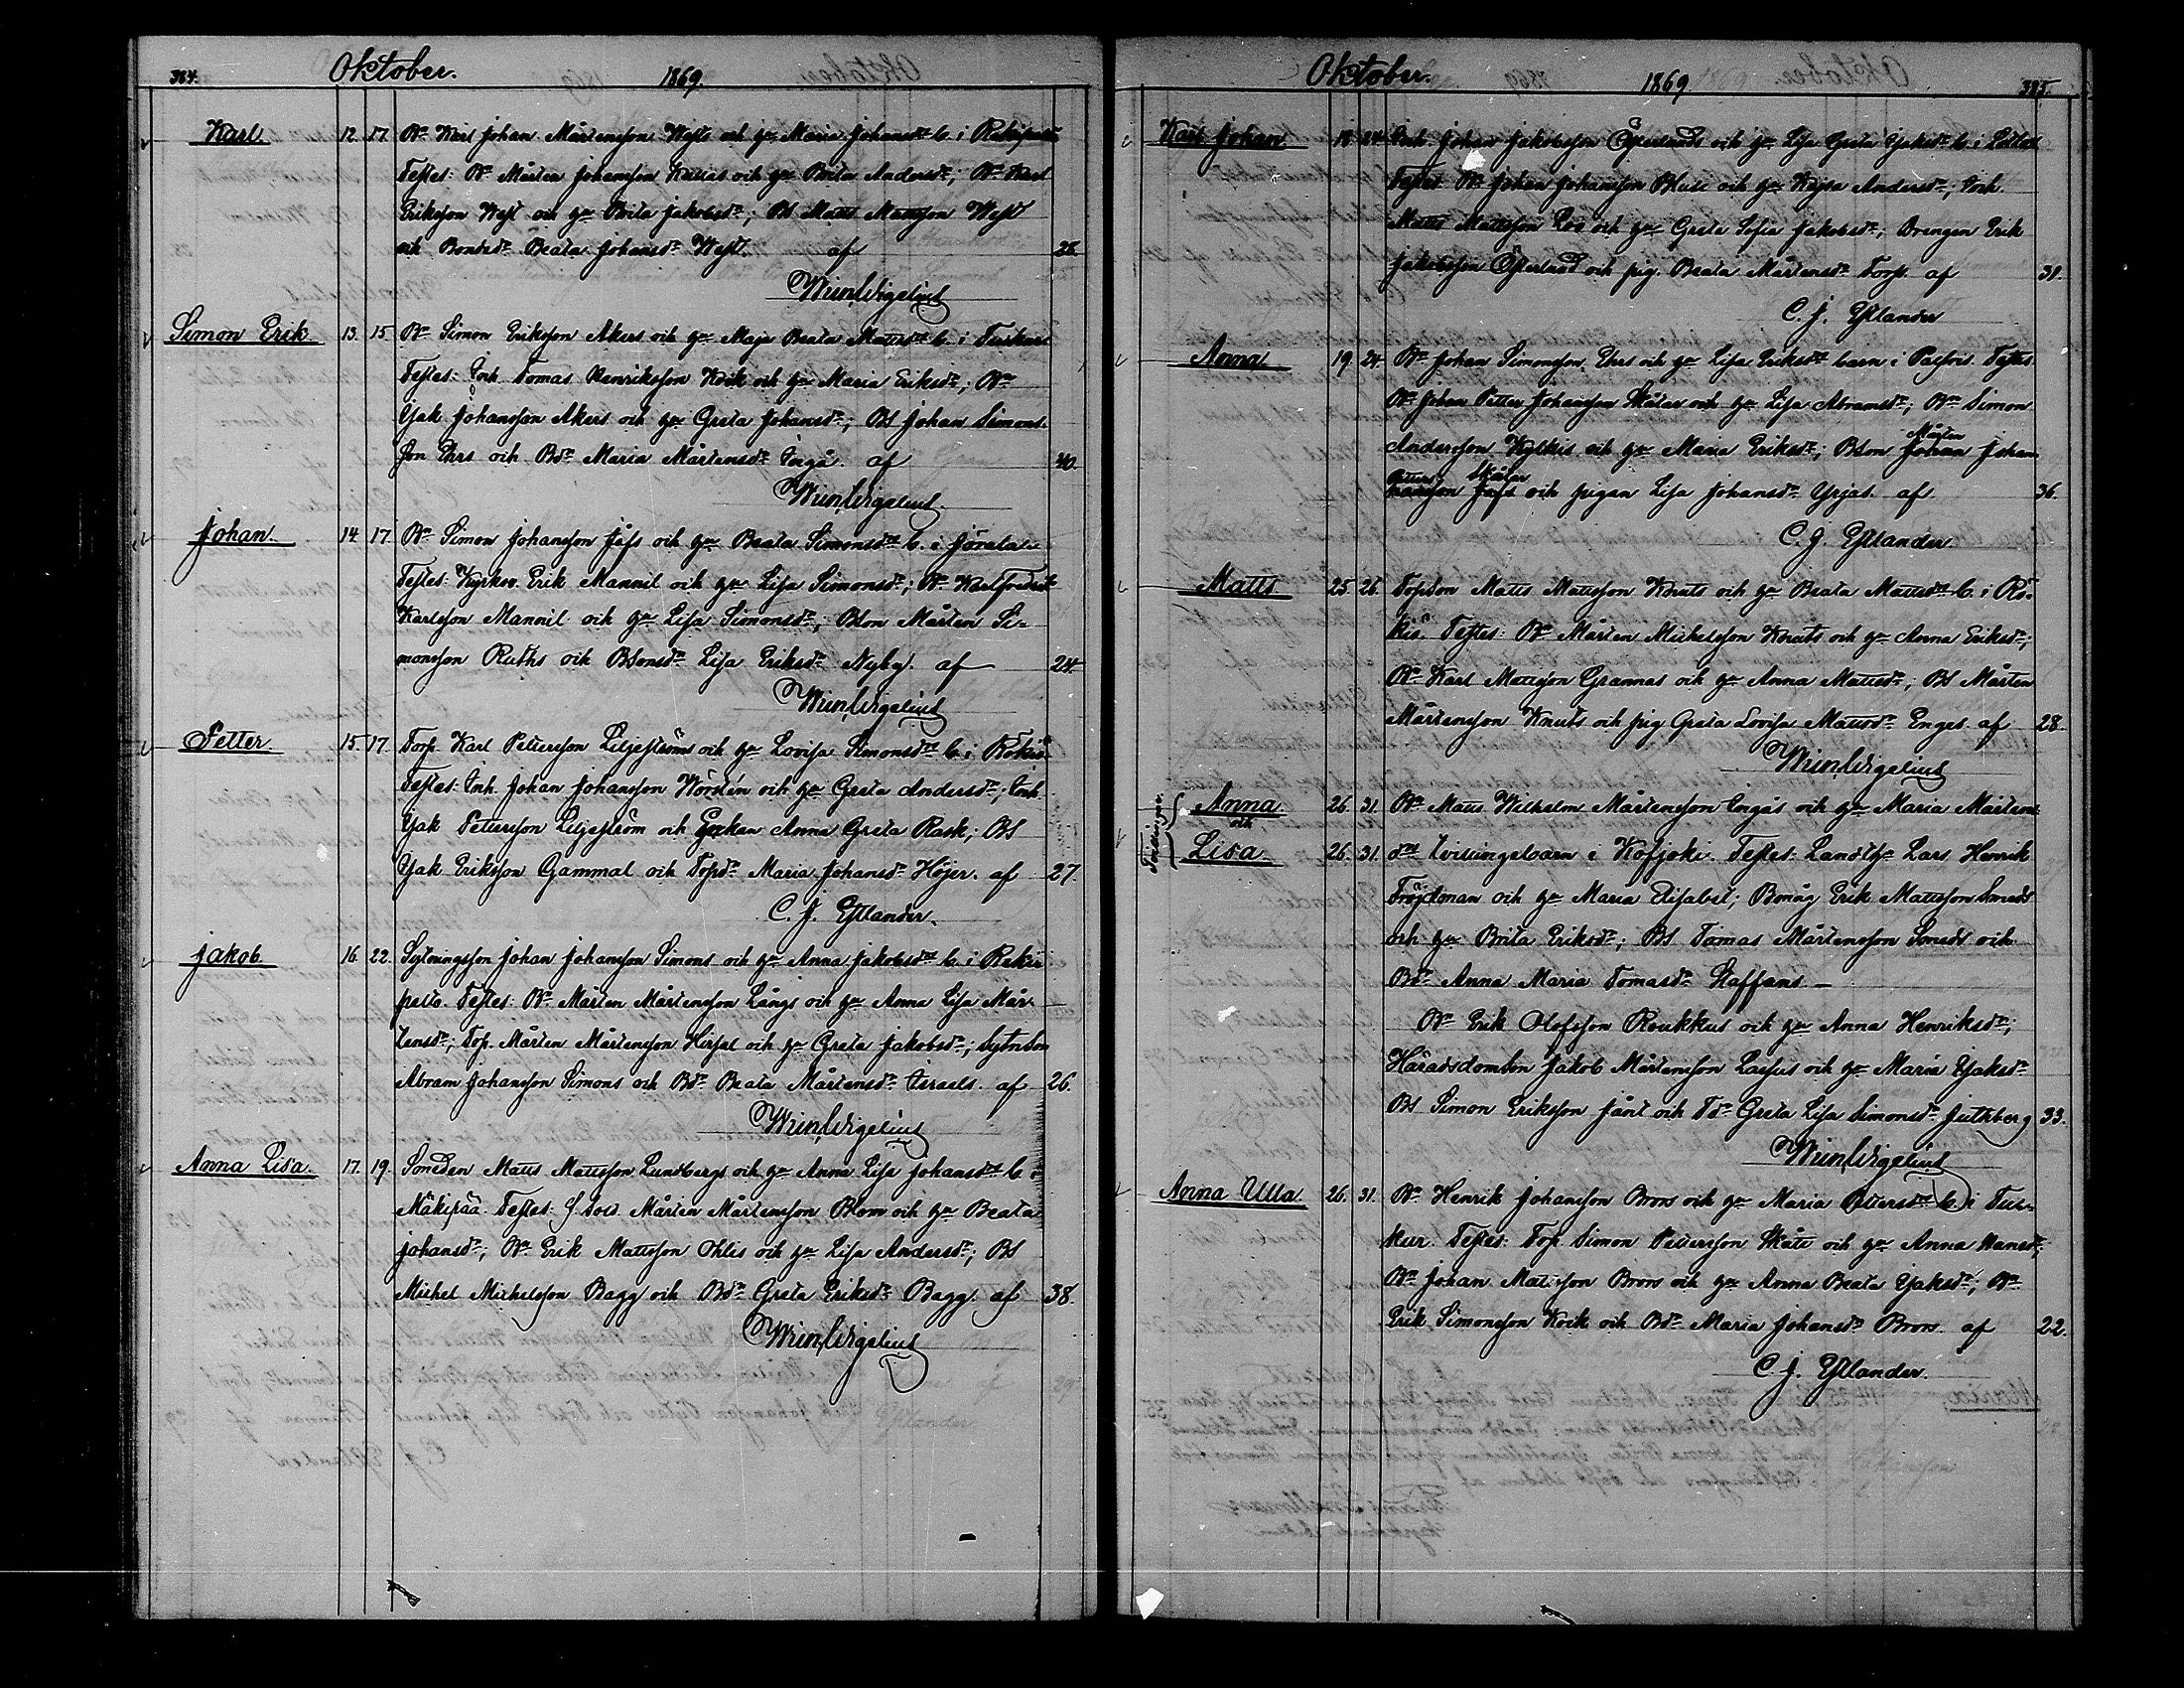 384. Oktober. 1869.
Karl. 12. 17. Bn Karl Johan Mårtensson West och hu Maria Johansdr b. i
Testes: Bn Mårten Johansson och hu Brita Andersdr; Bn Karl
Eriksson West och hu Brita Jakobsdr; BS Matts Mattsson West
och Bondedr Beata Johansdr West. af 28.
Wm Wigelius
Simon Erik 13. 15 Bn Simon Eriksson Akers och hu Maja Beata Mattsdr b. i Tuskas
Testes: Inh. Tomas Henriksson Kock och hu Maria Eriksdr; Bn
Isak Johansson Akers och hu Greta Johansdr; BS Johan Simons-
son Ehrs och Bdr Maria Mårtensdr Ingå. af 40.
Wm Wigelius
Johan. 14. 17. Bn Simon Johansson Jåfs och hu Beata Simonsdr b. i
Testes: Kyrkov. Erik Mannil och hu Lisa Simonsdr; Bn Karl Fredrik
Karlsson Mannil och hu Lisa Simonsdr; BSon Mårten Si-
monsson Ruths och BSonsdr Lisa Eriksdr Nyby. af 24
Wm Wigelius
Petter. 15. 17. Torp. Karl Pettersson Liljeströms och hu Lovisa Simonsdr b. i Rökiö
Testes: Inh. Johan Johansson Nordén och hu Greta Andersdr; Inh.
Isak Pettersson Liljeström och Enkan Anna Greta Rask; BS
Isak Eriksson Gammal och Topdr Maria Johansdr Höjer. af 27.
C. J. Estlander.
Jakob 16. 22. Sytningsson Johan Johansson Simons och hu Anna Jakobsdr b. i Rekii
pelto. Testes: Bn Mårten Mårtensson Långs och hu Anna Lisa Mår-
tensdr; Top. Mårten Mårtensson och hu Greta Jakobsdr; Sytnson
Abram Johansson Simons och Bdr Beata Mårtensdr Israels. af 26.
Wm Wigelius
Anna Lisa. 17. 19. Smeden Matts Mattsson Lundbergs och hu Anna Lisa Johansdr b. i
Mäkipää. Testes: f. Sold. Mårten Mårtensson Blom och hu Beata
Johansdr; Bn Erik Mattsson Ohlis och hu Lisa Andersdr; BS
Michel Michelsson Bagg och Bdr Greta Eriksdr Bagg. af 38.
Wm Wigelius
Oktober. 1869 385.
Karl Johan 18. 24. Inh. Johan Jakobsson Österlunds och hu Lisa Greta Isaksdr b. i
Testes: Bn Johan Johansson och hu Kajsa Andersdr; Inh.
Matts Mattsson Ros och hu Greta Sofia Jakobsdr; Drengen Erik
Jakobsson Österlund och pig. Beata Mårtensdr Torp. af 31.
C. J. Estlander
Anna 19. 24. Bn Johan Simonsson Ehrs och hu Lisa Eriksdr barn i Testes
Bn Johan Petter Johansson Skåtar och hu Lisa Abramsdr; Bn Simon
Mårten
Andersson och hu Maria Eriksdr; BSon Johan Johan
Petter Skåtar
hansson Jåfs och pigan Lisa Johansdr Yrjas. af 36.
C. J. Estlander.
Matts 25. 26. Topson Matts Mattsson Knuts och hu Beata Mattsdr b. i Rö-
kiö. Testes: Bn Mårten Michelsson Knuts och hu Anna Eriksdr;
Bn Karl Mattsson Grannas och hu Anna Mattsdr; BS Mårten
Mårtensson Knuts och pig Greta Lovisa Mattsdr Enges. af 28.
Wm Wigelius
Tvillingar.
Anna 26. 31. Bn Matts Wilhelm Mårtensson Ingås och hu Maria Mårtens
och
Lisa 26. 31. dr tvillingebarn i Kosjoki. Testes: Landthu Lars Henrik
Fröjdman och hu Maria Elisabet; Bmåg Erik Mattsson Smeds
och hu Brita Eriksdr; BS Tomas Mårtensson Smeds och
Bdr Anna Maria Tomasdr Staffans.—
Bn Erik Olofsson Roukkus och hu Anna Henriksdr;
Häradsdomson Jakob Mårtensson Lassus och hu Maria Isaksdr
BS Simon Eriksson Jånt och Tdr Greta Lisa Simonsdr Juthberg 33.
Wm Wigelius
Anna Ulla 26. 31. Bn Henrik Johansson Brors och hu Maria Pettersdr b. i Tus-
kus. Testes: Top. Simon Pettersson Skått och hu Anna Hansdr;
Bn Johan Mattsson Brors och hu Anna Beata Isaksdr; Bn
Erik Simonsson Kock och Bdr Maria Johansdr Brors. af 22.
C. J. Estlander.